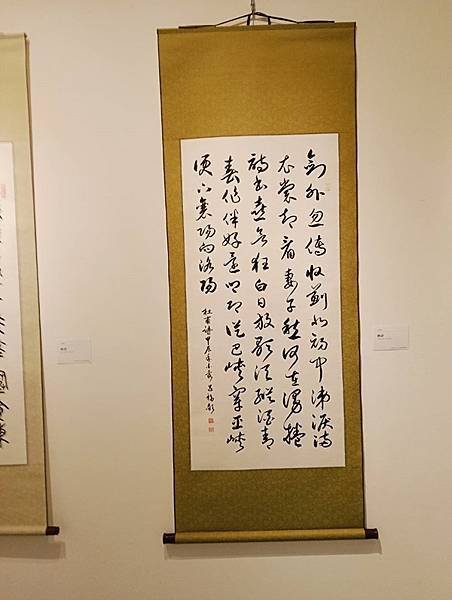 劍外忽傳收薊北初聞涕淚滿
衣裳却看妻子愁何在漫捲
詩書喜欲狂白日放歌須縱酒青
春作伴好還鄉即從巴峽穿巫峽
便下襄陽向洛陽
杜甫詩甲辰